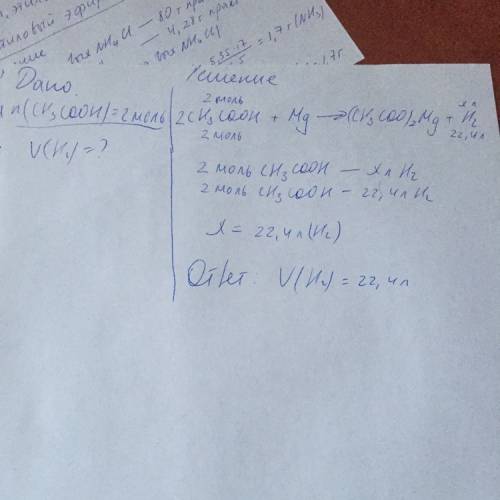 иловый эфир
вая NH4Cl — 80 г
— 4,28 г
вая NH4Cl
5,35·17 = 1,7 г (NH3)
1,7г.
Дано:
n(CH3COOH)=2моль
V(H2)=?
Решение
2 моль x л
2CH3COOH + Mg → (CH3COO)2Mg + H2
2 моль 22,4л
2 моль CH3COOH — x л H2
2 моль CH3COOH — 22,4л H2
x = 22,4л(H2)
Ответ: V(H2) = 22,4л